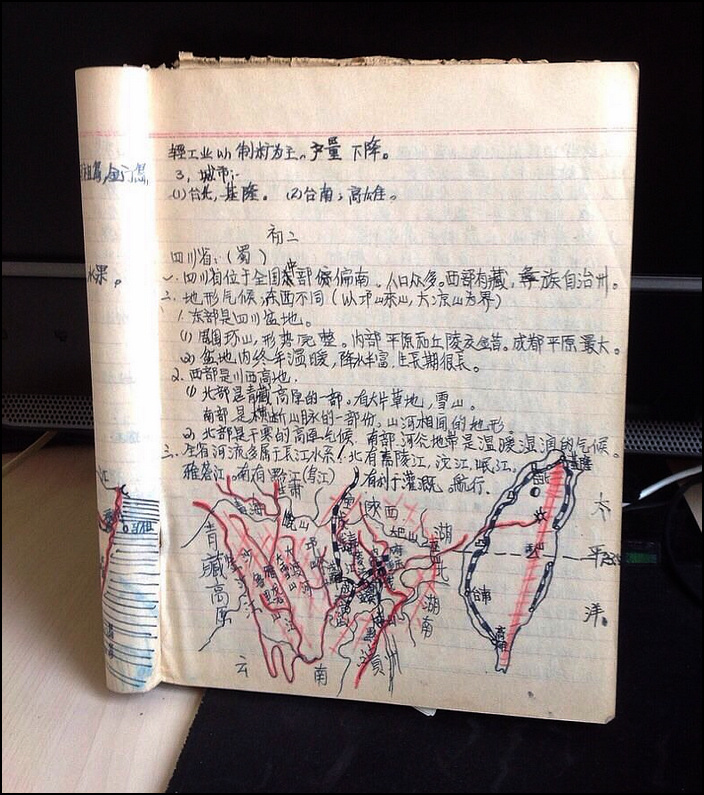 轻工业以制材为主,产量下降。
3、城市:
(1)台北,基隆。 (2)台南;高雄。
初二
水果。
四川省:(蜀)
一.四川省位于全国西部偏南,人口众多。西部有藏,彝族自治州。
二、地形气候,东西不同(以邛崃山,大凉山为界)
1.东部是四川盆地。
(1)周围环山,形势完整。内部平原而丘陵交错。成都平原最大。
(2)盆地内终年温暖,降水丰富,生长期很长。
2.西部是川西高地.
(1)北部是青藏高原的一部。有大片草地,雪山。
南部是横断山脉的一部份,山河相间的地形。
(2)北部是干寒的高原气候.南部河谷地带是温暖湿润的气候。
三.全省河流多属于长江水系!北有嘉陵江,沱江,岷江。
雅砻江。南有黔江(乌江) 有利于灌溉,航行.
甘肃
青海
陕西
湖
北
湖
南
青
藏
高
原
云
南
贵
州
基隆
台北
台南
高雄
太
平
洋